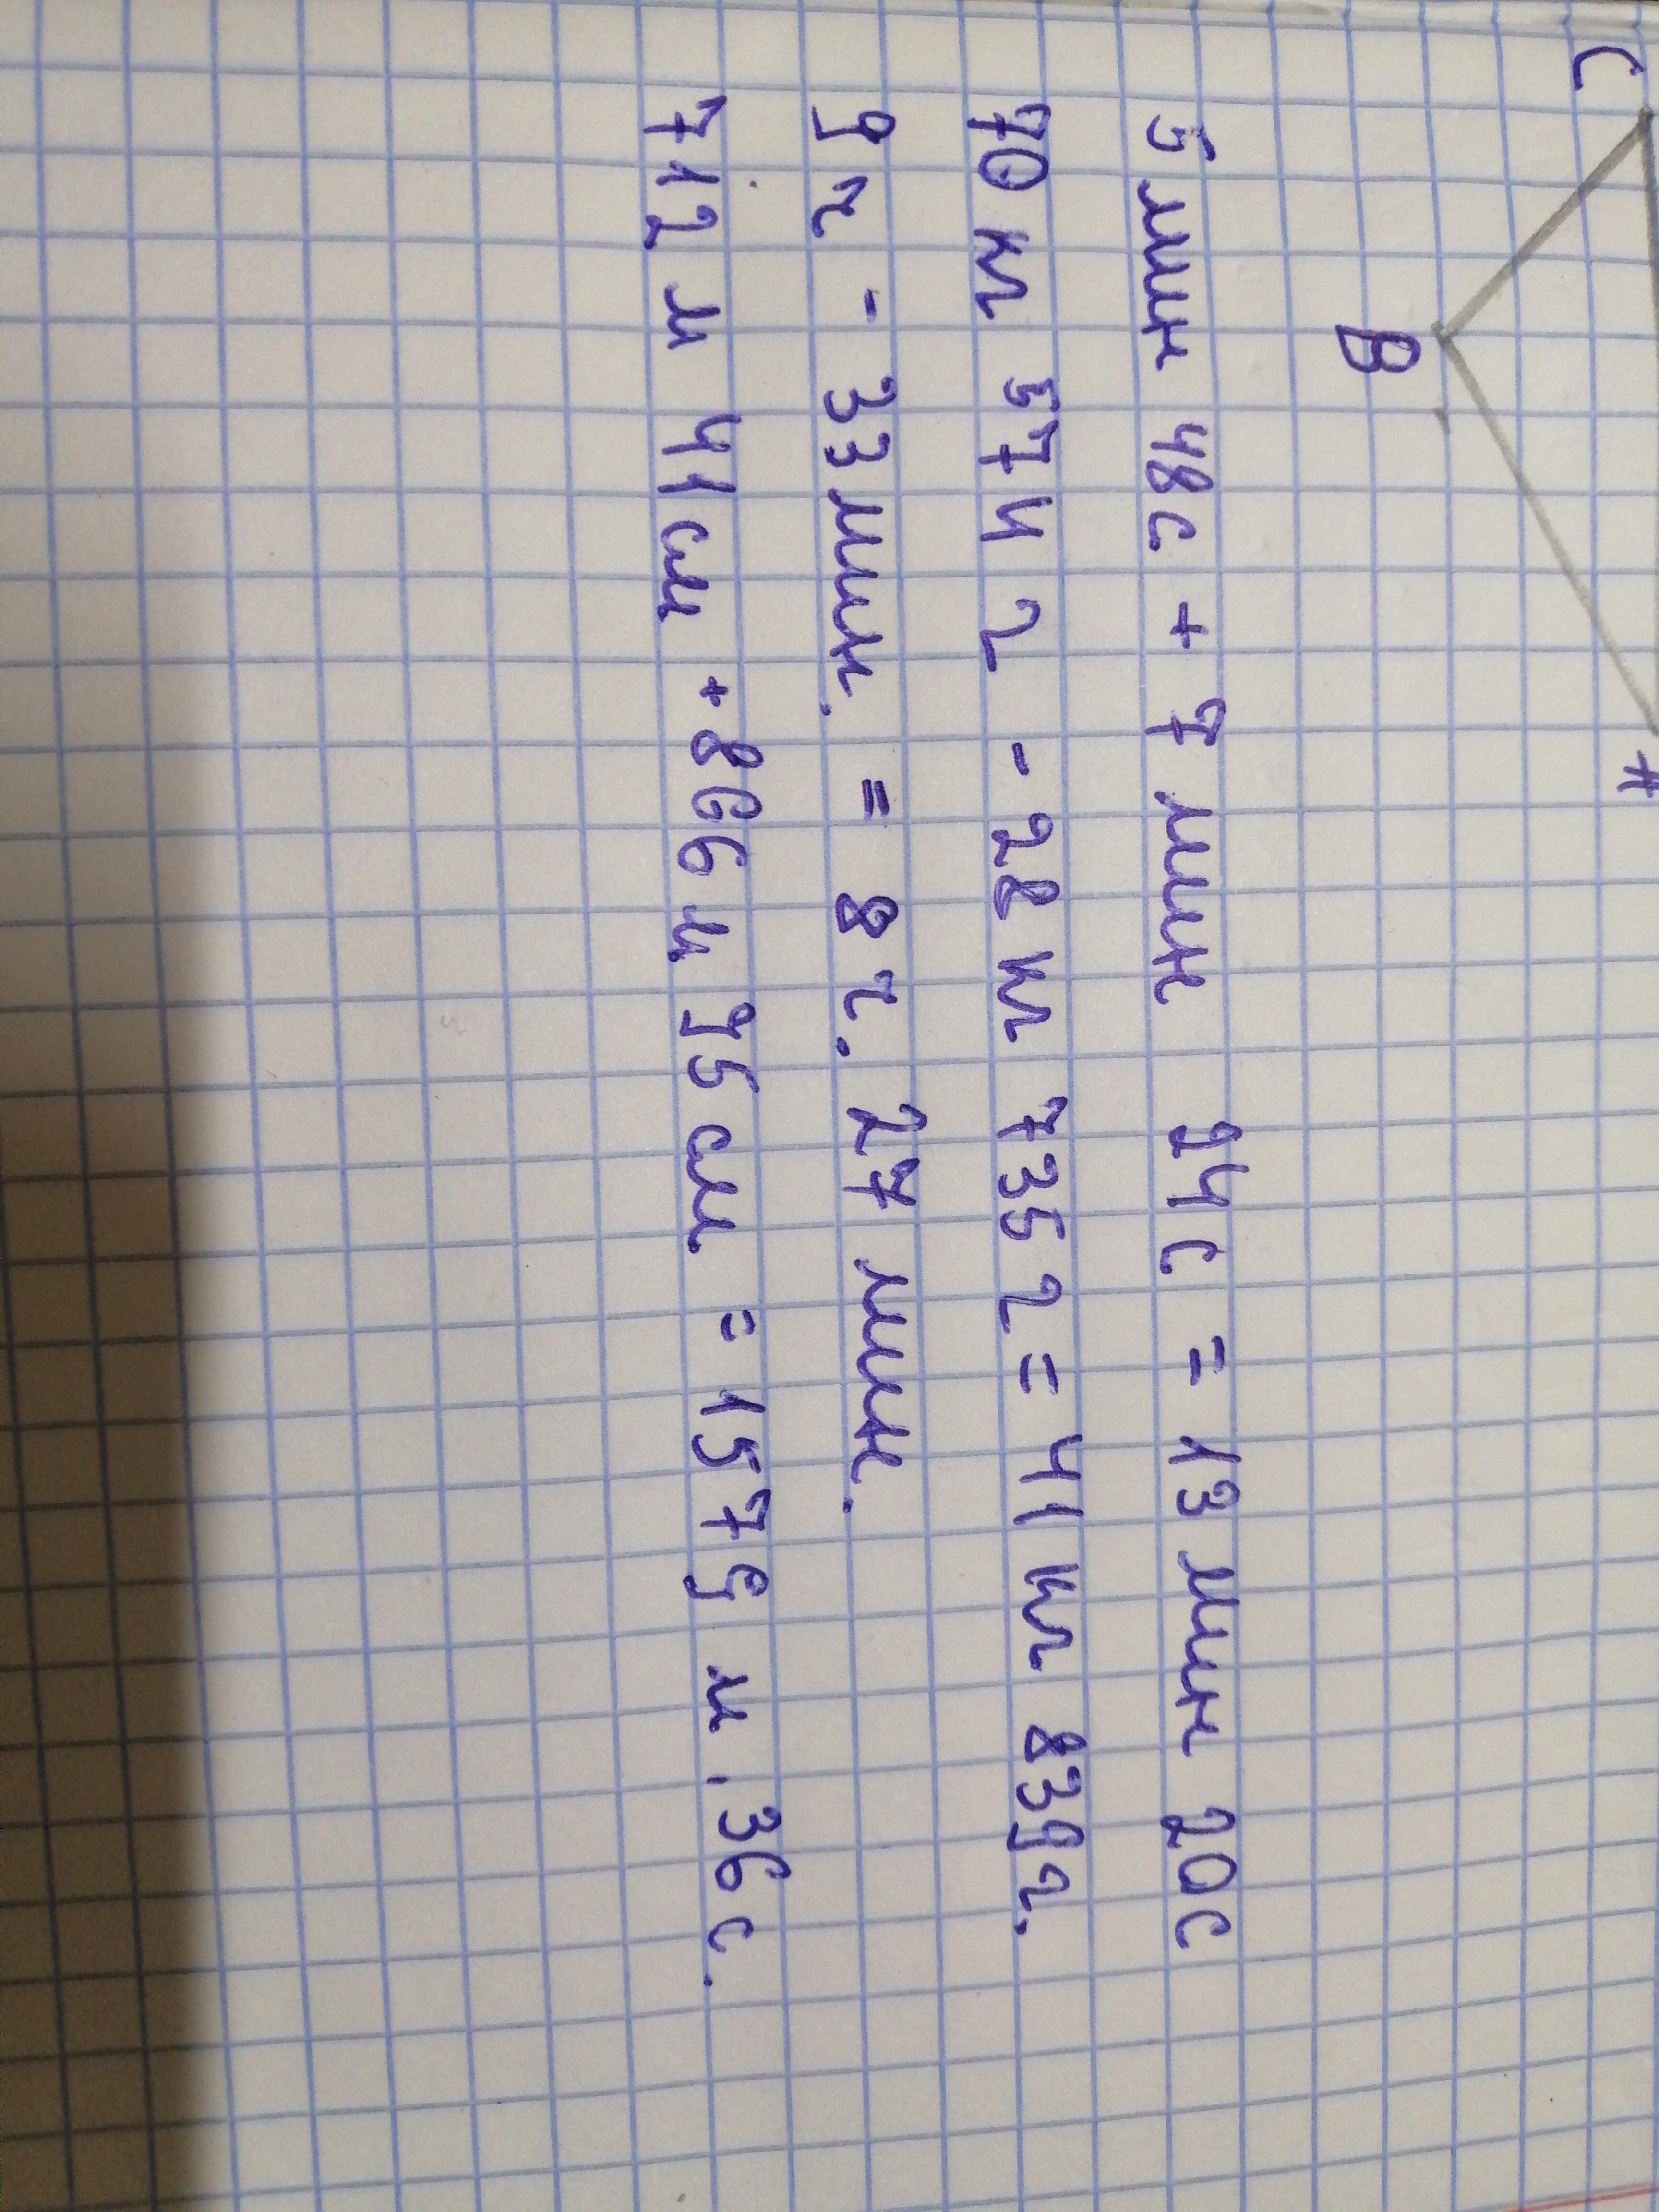 C
A
B
5 мин 48с + 7 мин 24с = 13 мин 20с
70 кг 574 г - 28 кг 735 г = 41 кг 839г.
9 ч - 33 мин. = 8 ч. 27 мин.
712 м 41 см + 866 м 95 см = 1579 м . 36 с.